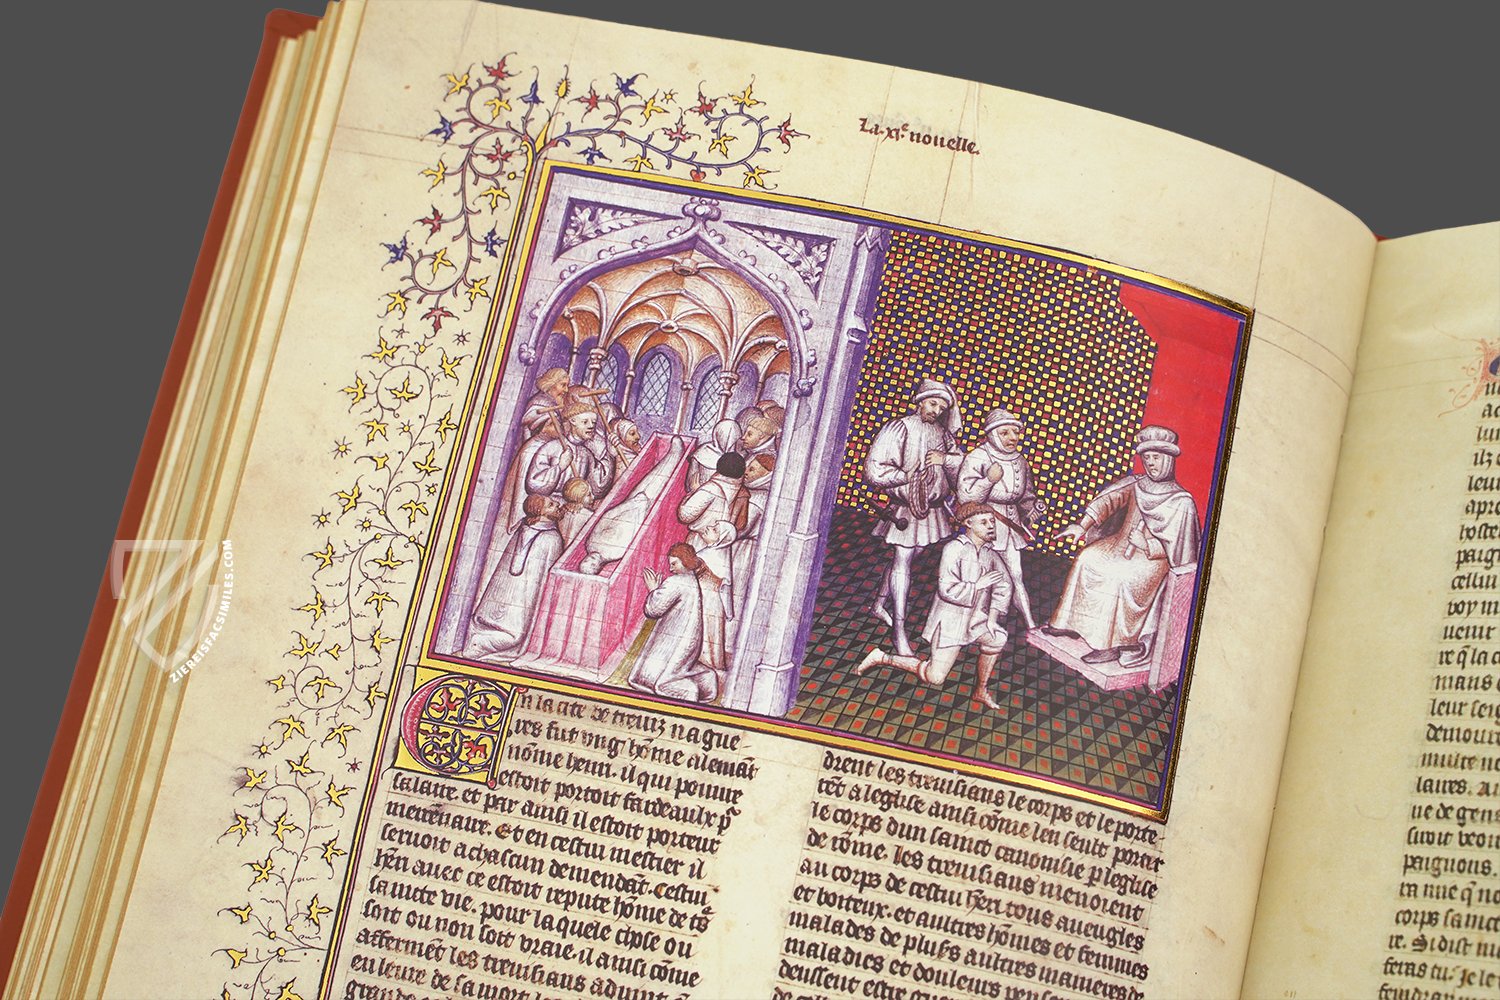 La .xie. nouelle.
En la cite de treuiz nague
res fut vng hõme alemãt
nõme henri. il qui pouure
estoit portoit fardeaulx pr
salaire et par ainsi il estoit porteur
mercenaire. Et en cestui mestier il
seruoit a chascun demendãt. Cestui
hẽri auec ce estoit repute hõme de tres
saincte vie. pour la quele chose ou
soit ou non soit vraie. il ainsi cõme
afferment les treuisians aduint q̃
en leure de sa mort les
drent les treuisians le corps et le porte
rẽt a leglise ainsi cõme len seult porter
le corps dun sainct canonise p leglise
de rõme. les treuisians menoient
au corps de cestui hẽri tous aueugles
et boiteux. et aultres hõmes et femmes
malades de plusrs aultres manieres de
maladies et douleurs
deussent estre
ilz
leur
apre
hoste
paig
cellui
voy
uenir
re q̃ la
mais
leur seig
demour
multe
laires.
ne de gens
paignons.
corps sainct
re. Si dist
feras tu. Je le
ZIEREISFACSIMILES.COM